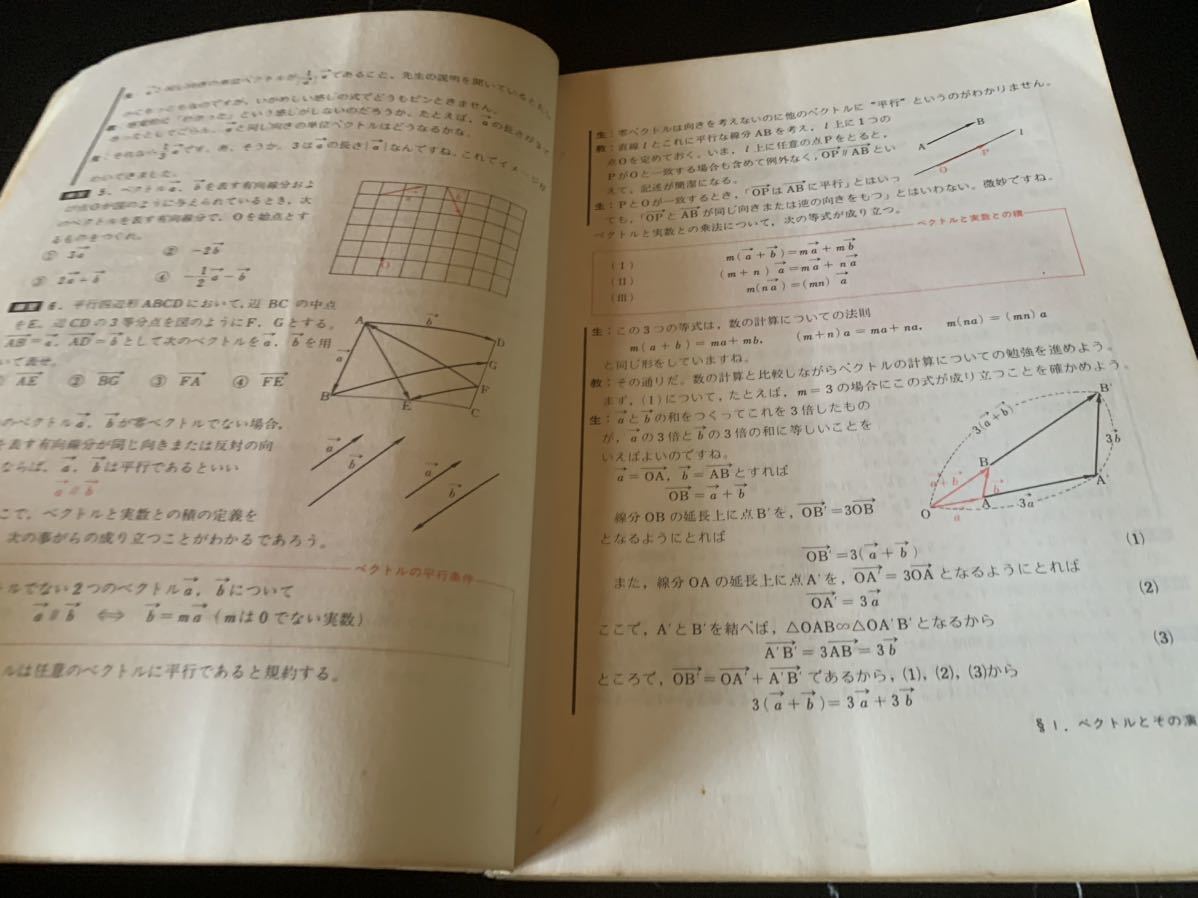 と同じ向きの単位ベクトルが であること，先生の説明を聞いていると
もっともなのですが，いかめしい感じの式でどうもピンときません。
という感じがしないのだろうか。たとえば，aの長さが3で
あったとしてごらん。aと同じ向きの単位ベクトルはどうなるかな。
生：それなら 1/3 a です。あ，そうか。3はaの長さ|a|なんですね。これでイメージが
わいてきました。
練習 5. ベクトルa，bを表す有向線分およ
び点Oが図のように与えられているとき，次
のベクトルを表す有向線分で，Oを始点とす
るものをつくれ。
① 3a ② －2b
③ 2a＋b ④ －1/2 a－b
O
練習 6. 平行四辺形ABCDにおいて，辺BCの中点
をE，辺CDの3等分点を図のようにF，Gとする。
AB＝a，AD＝bとして次のベクトルをa，bを用
いて表せ。
① AE ② BG ③ FA ④ FE
A b D
a G
F
B E C
のベクトルa，bが零ベクトルでない場合，
を表す有向線分が同じ向きまたは反対の向
ならば，a，bは平行であるといい
a∥b
a b a b
こで，ベクトルと実数との積の定義を
次の事がらの成り立つことがわかるであろう。
ベクトルの平行条件
トルでない2つのベクトルa，bについて
a∥b ⟺ b＝ma（mは0でない実数）
ルは任意のベクトルに平行であると規約する。
生：零ベクトルは向きを考えないのに他のベクトルに“平行”というのがわかりません。
教：直線lとこれに平行な線分ABを考え，l上に1つの
点Oを定めておく。いま，l上に任意の点Pをとると，
PがOと一致する場合も含めて例外なく，OP∥ABとい
えて，記述が簡潔になる。
生：PとOが一致するとき，「OPはABに平行」とはいっ
ても，「OPとABが同じ向きまたは逆の向きをもつ」とはいわない。微妙ですね。
A B l
O P
ベクトルと実数との乗法について，次の等式が成り立つ。
ベクトルと実数との積
(Ⅰ) m(a＋b)＝ma＋mb
(Ⅱ) (m＋n)a＝ma＋na
(Ⅲ) m(na)＝(mn)a
生：この3つの等式は，数の計算についての法則
m(a＋b)＝ma＋mb， (m＋n)a＝ma＋na， m(na)＝(mn)a
と同じ形をしていますね。
教：その通りだ。数の計算と比較しながらベクトルの計算についての勉強を進めよう。
まず，(1)について，たとえば，m＝3の場合にこの式が成り立つことを確かめよう。
生：aとbの和をつくってこれを3倍したもの
が，aの3倍とbの3倍の和に等しいことを
いえばよいのですね。
a＝OA，b＝ABとすれば
OB＝a＋b
線分OBの延長上に点B′を，OB′＝3OB
となるようにとれば
B′
3(a＋b)
3b
B
a＋b b
O a A 3a A′
OB′＝3(a＋b) (1)
また，線分OAの延長上に点A′を，OA′＝3OAとなるようにとれば
OA′＝3a (2)
ここで，A′とB′を結べば，△OAB∽△OA′B′となるから
A′B′＝3AB＝3b (3)
ところで，OB′＝OA′＋A′B′であるから，(1)，(2)，(3)から
3(a＋b)＝3a＋3b
§1．ベクトルとその演